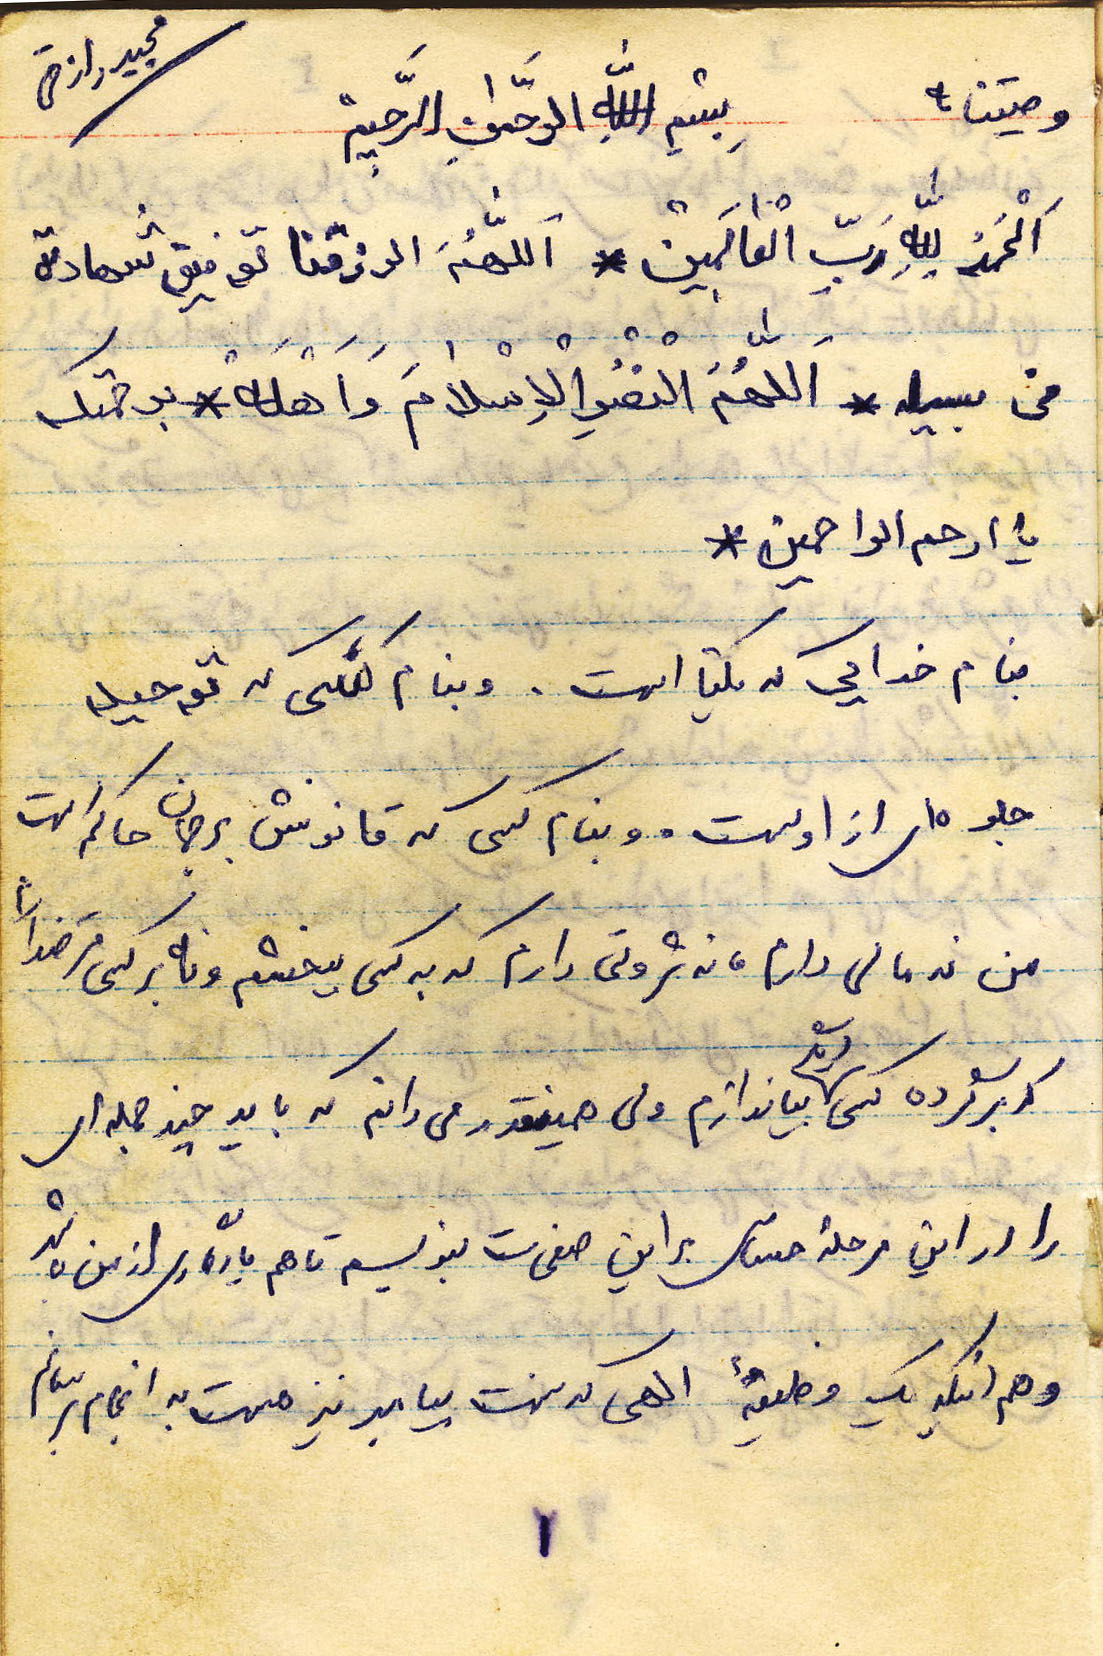 وصیتنامه بِسْمِ اللّٰهِ الرَّحمٰنِ الرَّحیمِ مجید رازقی
اَلْحَمْدُ لِلّٰهِ رَبِّ الْعٰالَمِیْن * اَللّٰهُمَ الرزقنا توفیق شهادة
فی سبیله * اَللّٰهُمَ الْنْصُرِ الْاِسْلٰامَ وَاَهْلَهْ * برحمتک
یا ارحم الراحمین *
بنام خدایی که یکتا است . و بنام کسی که توحید
جلوه ای از اوست . و بنام کسی که قانونش بر جهان حاکم است
من نه مالی دارم ، نه ثروتی دارم که به کسی ببخشم و نه بر کسی قرضدارم
که بر گرده کسی دیگر بیاندازم ولی همینقدر می دانم که باید چند جمله ای
را در این مرحلهٔ حساس بر این صفحات بنویسم تا هم یادگاری از من باشد
و هم اینکه یک وظیفهٔ الهی که سنت پیامبر نیز هست به انجام برسانم
۱